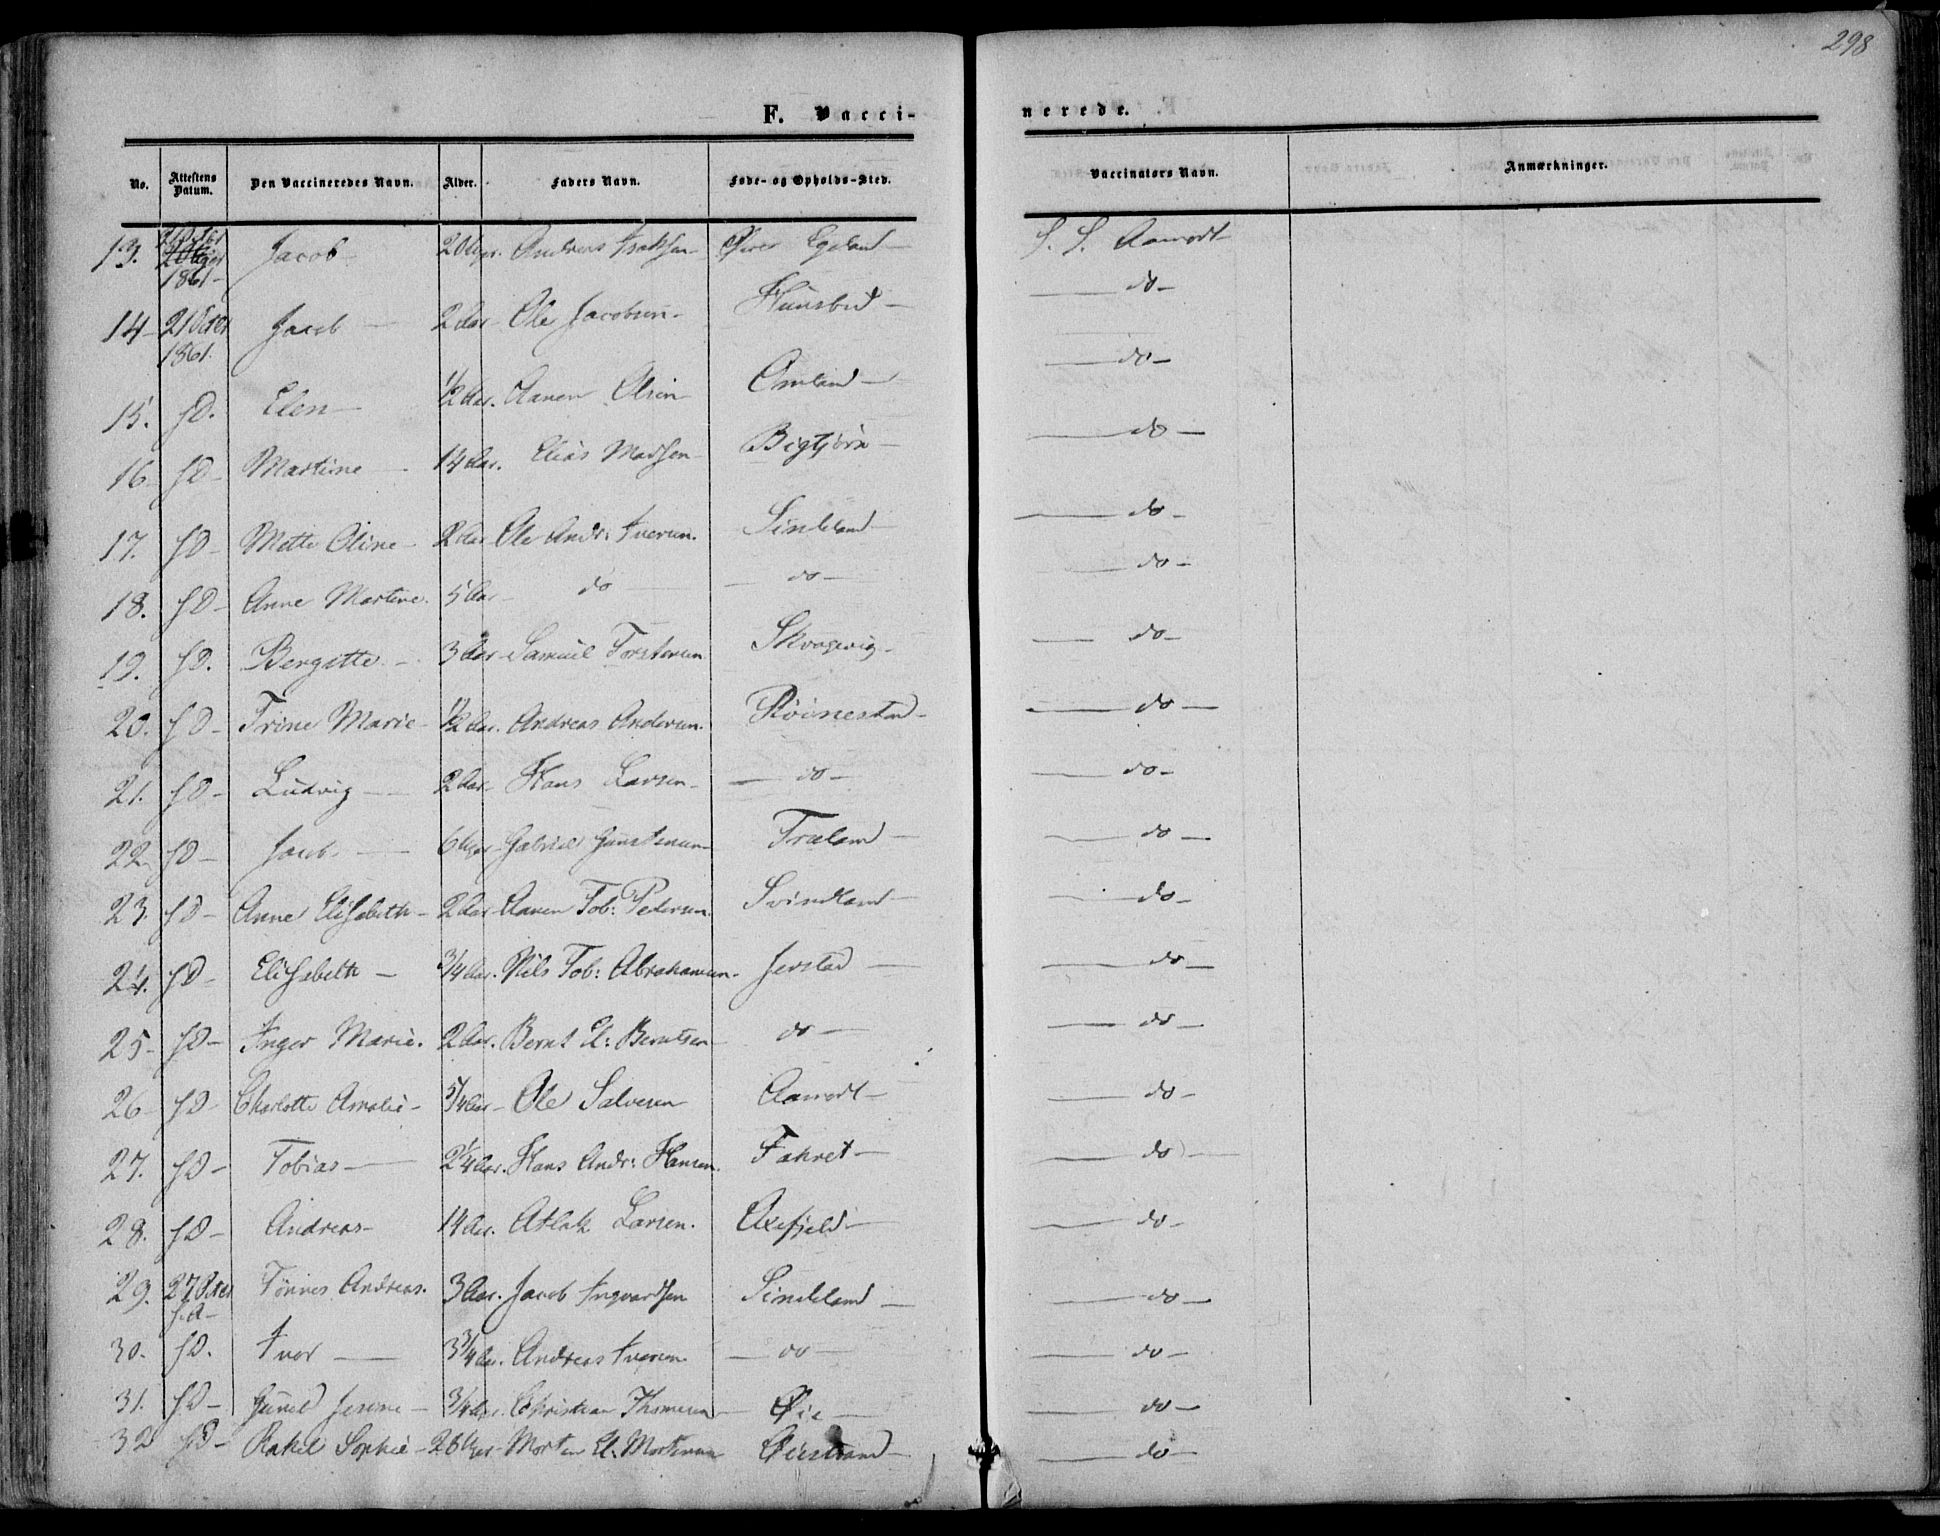 298
F. Vacci-
nerede.
No. Attestens Datum. Den Vaccineredes Navn. Alder. Faders Navn. Føde- og Opholds-Sted. Vaccinators Navn. Anmærkninger.
13. 1861- Jacob- 20 Uger. Andreas Isaksen- Øvre Egeland- S. S. Aamodt
14- 21 Octer 1861. Jacob- 2 Aar- Ole Jacobsen- do-
15. sD. Elen- 1/2 Aar. Aanen Olsen Omland- do-
16. sD- Martine- 14 Aar. Elias Madsen- Bigtjörn- do-
17. sD- Mette Oline- 2 Aar Ole Andr: Iversen. Sindland- do-
18. sD- Anne Martine. 5 Aar- do -do- do-
19. sD. Bergitte- 3 Aar- Samuel Torstensen do-
20. sD- Trine Marie- 1/2 Aar. Andreas Andersen. Röinestad- do-
21. sD- Ludvig- 2 Aar- Hans Larsen- -do- do-
22- sD- Jacob- 6 Uger- Gabriel Træland- do-
23. sD- Anne Elisabeth- 2 Aar- Aanen Tob: Pedersen. Svindland- do-
24. sD- Elisabeth- 3/4 Aar. Nils Tob: Abrahamsen. Jerstad- do-
25- sD- Inger Marie. 2 Aar. Bernt El: Berntsen do- do-
26- sD- Charlotte Amalie- 5/4 Aar- Ole Salvesen Aamodt- do-
27. sD- Tobias- 2 1/4 Aar. Hans Andr: Hansen. Fahret- do-
28. sD- Andreas- 14 Aar. Atlak Larsen. Axefjeld- do-
29. 27 Octer s.A- Tönnes Andreas. 3 Aar. Jacob Ingvardsen Sindland- do-
30. sD. Iver- 3 3/4 Aar. Andreas Iversen -do- do-
31. sD- Gunild Jesine- 3/4 Aar. Christian Thomesen- Øie- do-
32 sD- Rakel Sophie- 26 Uger- Morten El. Mortensen Øiestrand- do-